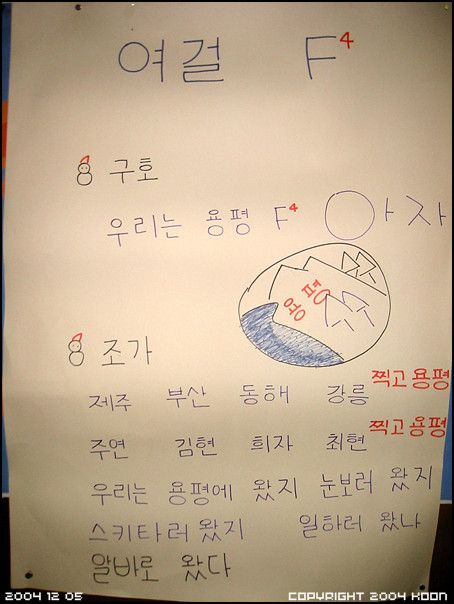 여걸 F4
구호
우리는 용평 F4 아자
용평
조가
제주 부산 동해 강릉 찍고 용평
주연 김현 희자 최현 찍고 용평
우리는 용평에 왔지 눈보러 왔지
스키타러 왔지 일하러 왔나
알바로 왔다
2004 12 05
COPYRIGHT 2004 KOON